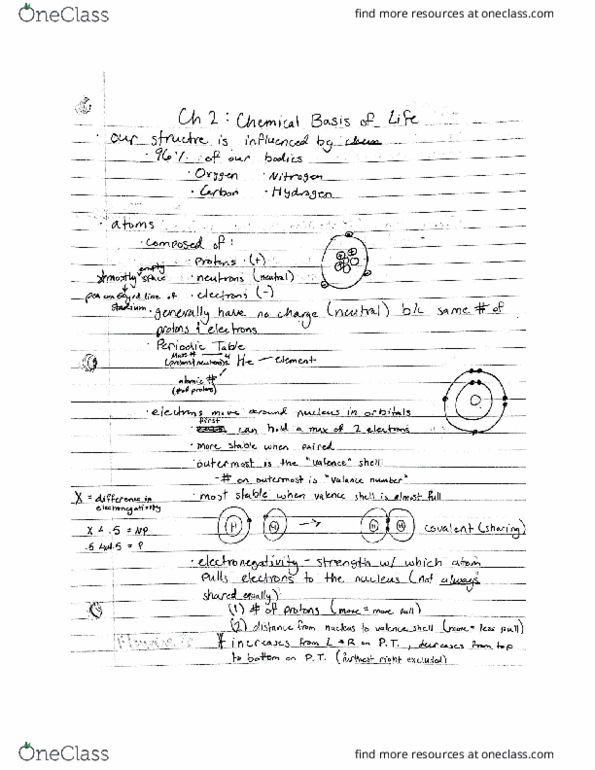 OneClass
find more resources at oneclass.com
Ch 2: Chemical Basis of Life
· our structre is influenced by
· 96% of our bodies
· Oxygen · Nitrogen
· Carbon · Hydrogen
· atoms
· composed of:
· protons (+)
*mostly empty space
· neutrons (neutral)
· electrons (-)
pea on 50 yd line of stadium
· generally have no charge (neutral) b/c same # of
protons & electrons
· Periodic Table
Mass #
(protons+neutrons)
4
He — element
atomic #
(# of protons)
· electrons move around nucleus in orbitals
· first can hold a max of 2 electrons
· more stable when paired
· outermost is the "valence" shell
- # on outermost is "valance number"
· most stable when valence shell is almost full
X = difference in
electronegativity
X < .5 = NP
H H → H H covalent (sharing)
· electronegativity - strength w/ which atom
pulls electrons to the nucleus (not always
shared equally)
(1) # of protons (more = more pull)
(2) distance from nucleus to valence shell (more = less pull)
* increases from L→R on P.T., decreases from top
to bottom on P.T. (furthest right excluded)
OneClass
find more resources at oneclass.com